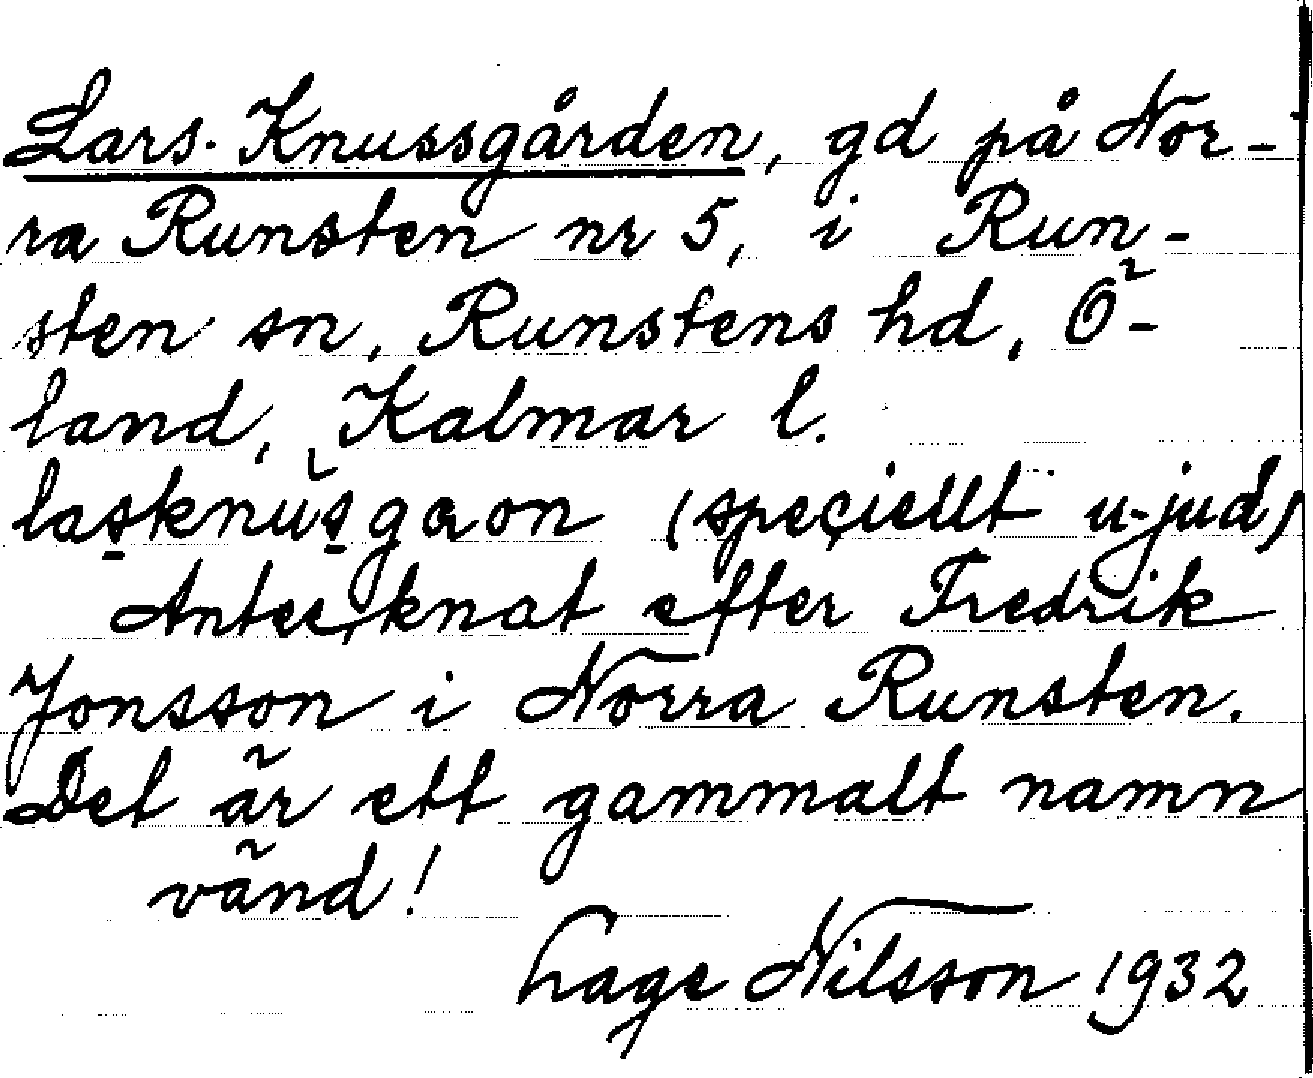 Lars-Knussgården, gd på Nor-
ra Runsten nr 5, i Run-
sten sn, Runstens hd, Ö-
land, Kalmar l.
(speciellt u-jud)
Antecknat efter Fredrik
Jonsson i Norra Runsten.
Det är ett gammalt namn
vänd!
Hage Nilsson 1932